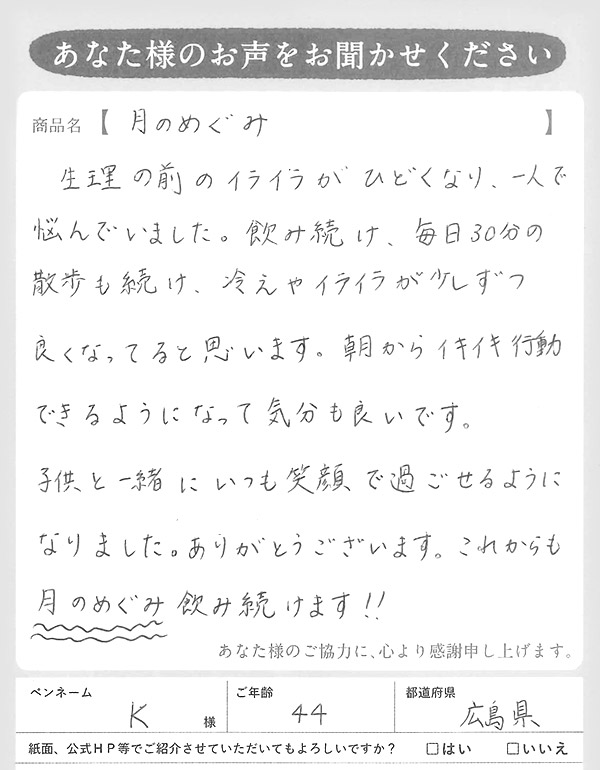 あなた様のお声をお聞かせください
商品名【 月のめぐみ 】
生理の前のイライラがひどくなり、一人で
悩んでいました。飲み続け、毎日30分の
散歩も続け、冷えやイライラが少しずつ
良くなってると思います。朝からイキイキ行動
できるようになって気分も良いです。
子供と一緒にいつも笑顔で過ごせるように
なりました。ありがとうございます。これからも
月のめぐみ飲み続けます!!
あなた様のご協力に、心より感謝申し上げます。
ペンネーム ご年齢 都道府県
K 様 44 広島県
紙面、公式HP等でご紹介させていただいてもよろしいですか? □はい □いいえ